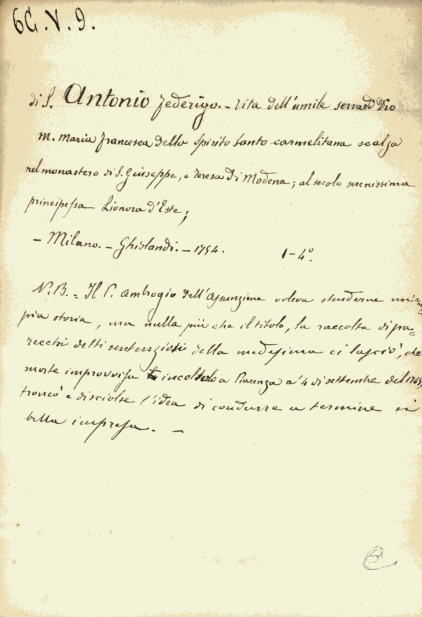 6G.V.9.
di S. Antonio Federigo. - Vita dell'umile serva di Dio
M. Maria Francesca dello Spirito Santo carmelitana scalza
nel monastero di S. Giuseppe, e Teresa di Modena; al secolo serenissima
principessa Lionora d'Este;
- Milano. - Ghislandi. - 1754. 1-4°.
N.B. = Il P. Ambrogio dell'Assunzione voleva stenderne un'am
pia storia, ma nulla più che il titolo, la raccolta di pa=
recchi detti sentenziosi della medesima ci lasciò, che
morte improvvisa incoltolo a Piacenza a' 4 di settembre del
troncò e disciolse l'idea di condurre a termine sì
bella impresa. -